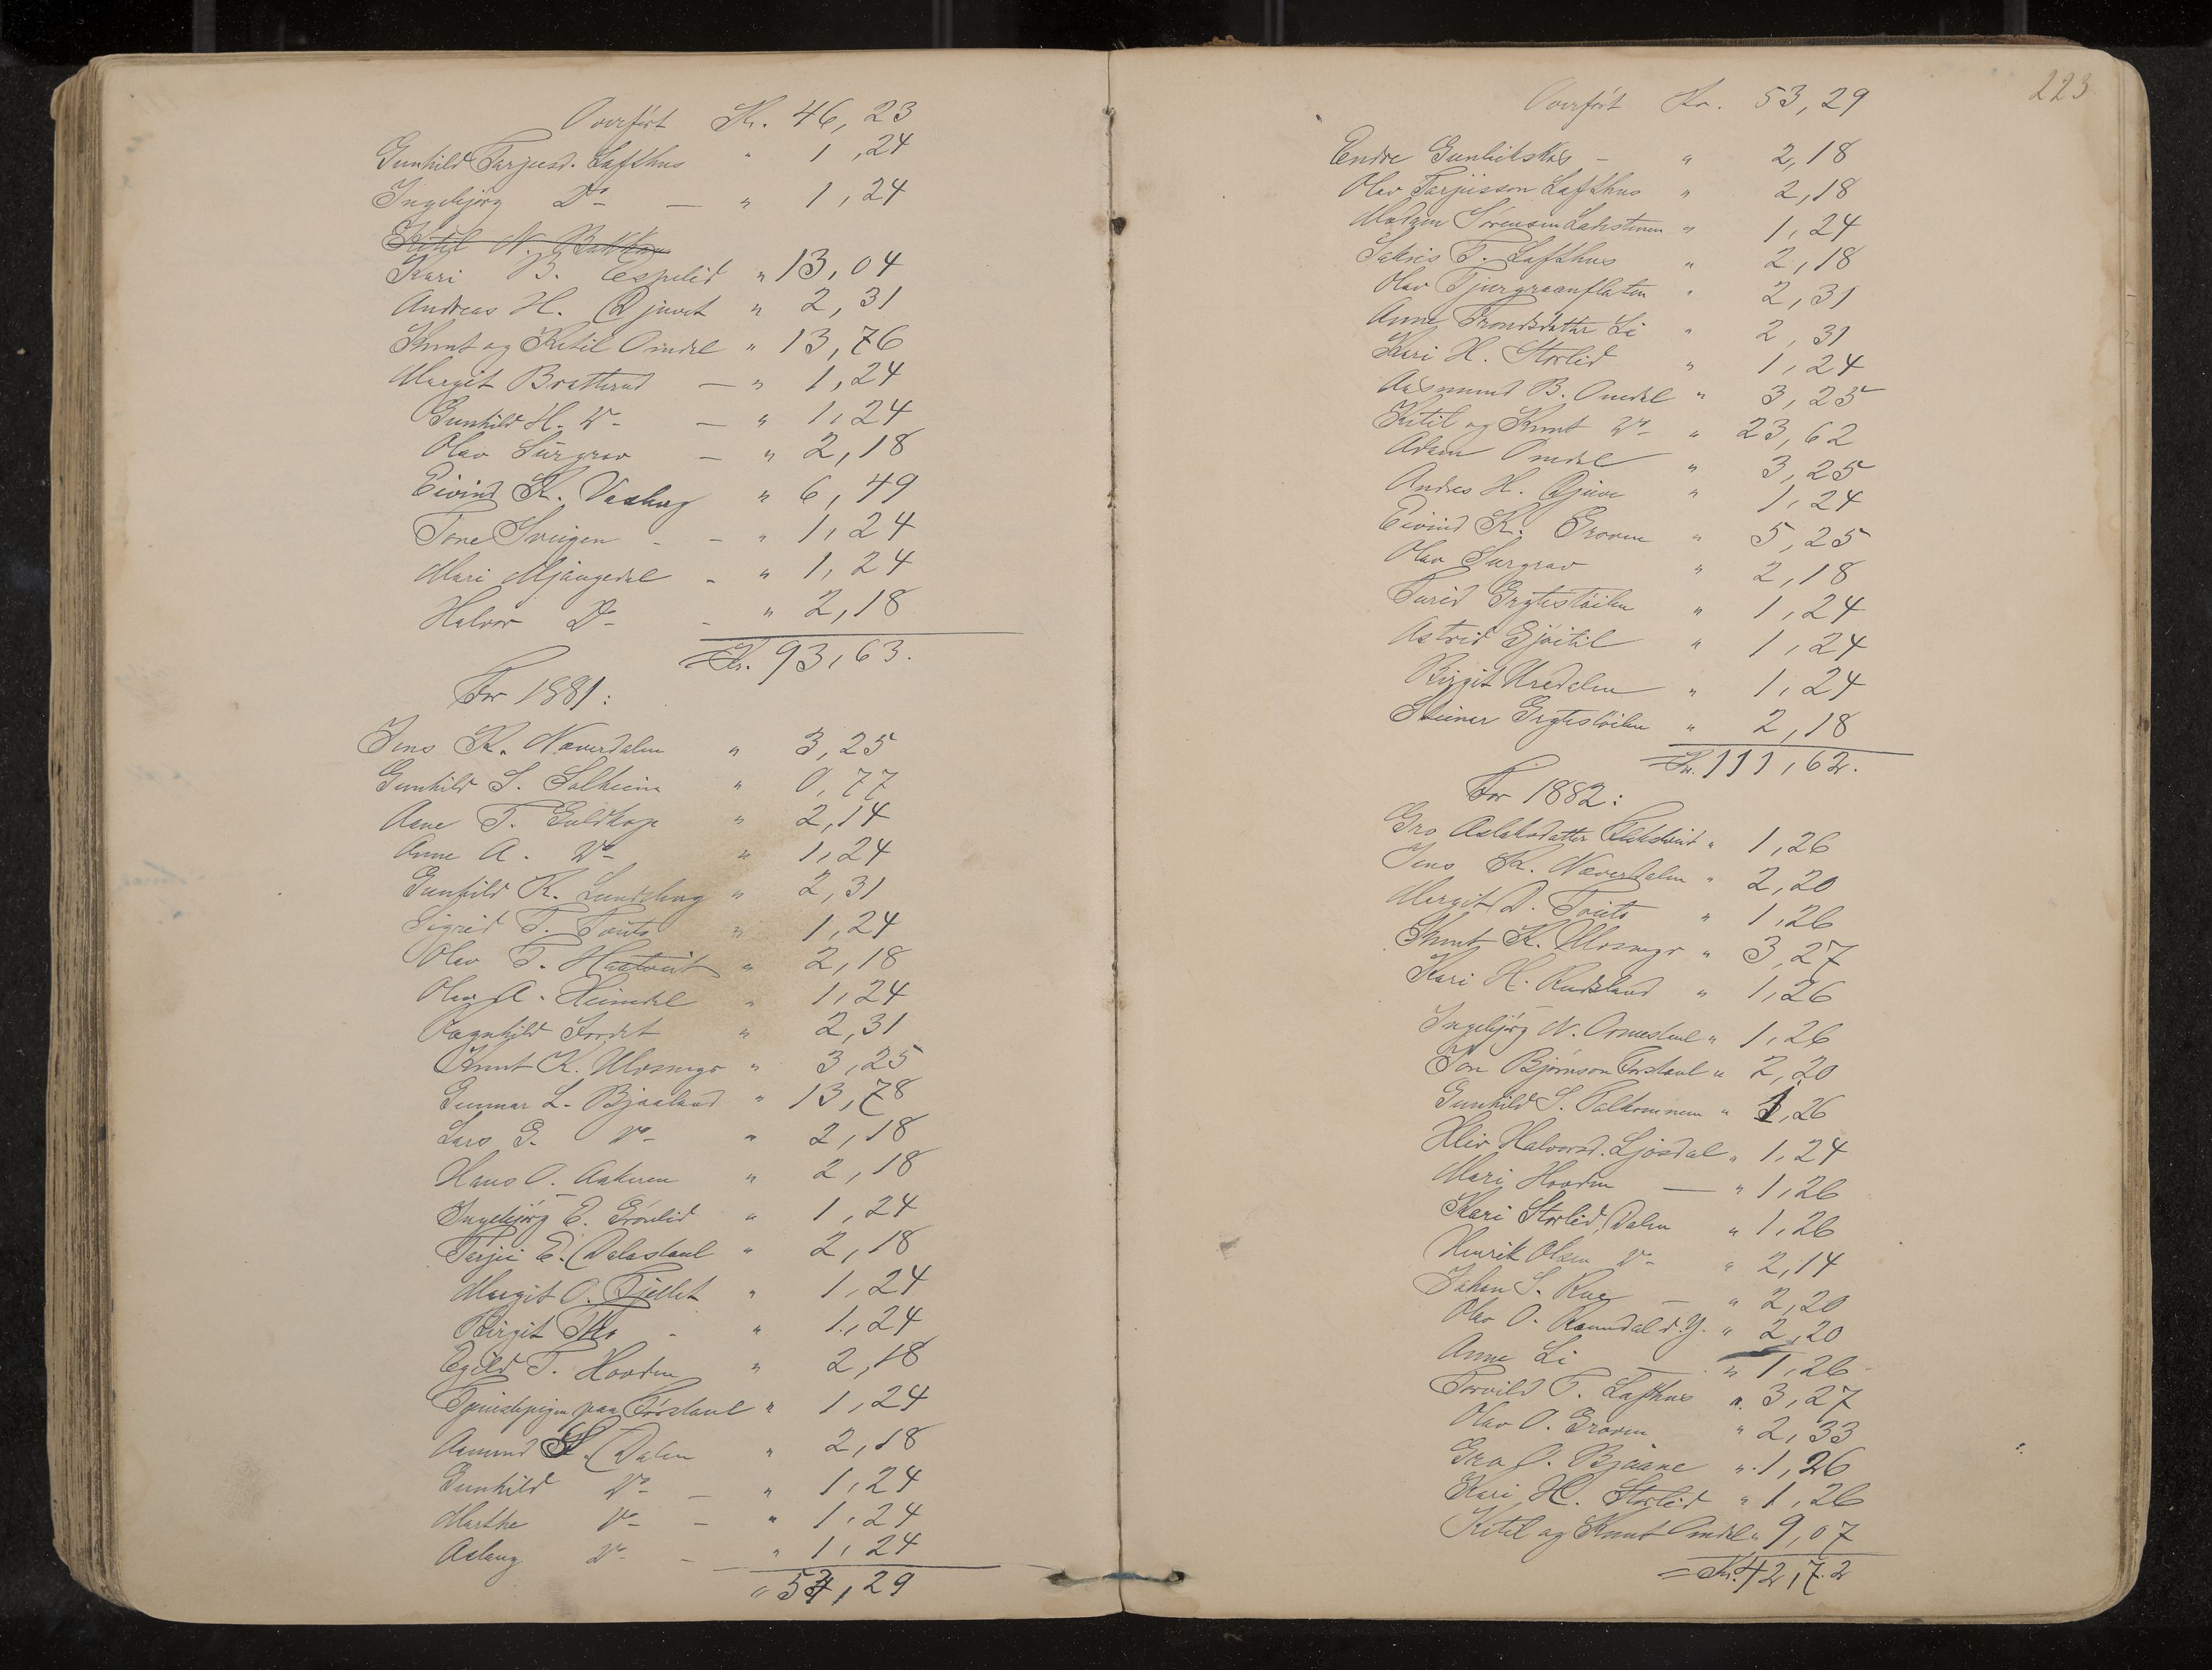 Overført Kr. 46,23
Gunhild Tarjeisd. Lafthus " 1,24
Ingebjørg Do — " 1,24
Ketil N. Bakken
Kari B. Espelid " 13,04
Andreas H. Djuvet " 2,31
Knut og Ketil Omdal " 13,76
Margit Bratterud — " 1,24
Gunhild H. Do — " 1,24
Olav Surgrav — " 2,18
Eivind K. Vashug " 6,49
Tone Sveigen - - " 1,24
Mari Mjaugedal - " 1,24
Halvor Do - " 2,18
= Kr. 93,63.
For 1881:
Jens K. Næverdalen " 3,25
Gunhild S. Solheim " 0,77
Aane T. Guldhop " 2,14
Anne A. Do " 1,24
Gunhild K. Lundehug " 2,31
Sigrid T. Touto " 1,24
Olav T. Haatveit " 2,18
Olav A. Heimdal " 1,24
Ragnhild Jordet " 2,31
Knut K. Mosnap " 3,25
Gunnar L. Bjaaland " 13,78
Lars G. Do " 2,18
Hans O. Aakeren " 2,18
Ingebjørg E. Grönlid " 1,24
Tarjei E. Dalastaul " 2,18
Margit O. Fjellet " 1,24
Birgit Mo - " 1,24
Egild T. Hovden " 2,18
Tjenestepigen paa Törstaul " 1,24
Aamund S. Dalen " 2,18
Gunhild Do — " 1,24
Marthe Do — " 1,24
Aslaug Do — " 1,24
" 53,29
223
Overført Kr. 53,29
Endre Gunleiksaas - " 2,18
Olav Tarjeisson Lafthus " 2,18
Madam Sørensen " 1,24
T. Lafthus " 2,18
Olav Tjurgraanflaten " 2,31
Anne Trondsdatter Li " 2,31
Kari H. Storlid " 1,24
Aasmund B. Omdal " 3,25
Ketil og Knut Do " 23,62
Adam Omdal " 3,25
Andres H. Djuve " 1,24
Eivind K. Groven " 5,25
Olav Surgrav " 2,18
Turid Grytestöilen " 1,24
Astrid Gjöitil " 1,24
Birgit Uredalen " 1,24
Steinar Grytestöilen " 2,18
= Kr. 111,62.
For 1882:
Gro Aslaksdatter " 1,26
Jens K. Næverdalen " 2,20
Margit D. Touto " 1,26
Knut K. Mosnap " 3,27
Kari H. Rudsland " 1,26
Ingebjörg N. Ormestaul " 1,26
Jon Björnson Torstaul " 2,20
Gunhild S. " 1,26
Hliv Halvorsd. Ljosdal " 1,24
Mari Hovden — " 1,26
Kari Storlid, Dalen " 1,26
Henrik Olsen Do " 2,14
Johan S. Rue — " 2,20
Olav O. Raundal d. Y. " 2,20
Anne Li — " 1,26
Torvild T. Lafthus " 3,27
Olav O. Groven " 2,33
Gro J. Bjaane " 1,26
Kari H. Storlid " 1,26
Ketil og Knut Omdal " 9,07
= Kr. 42,72